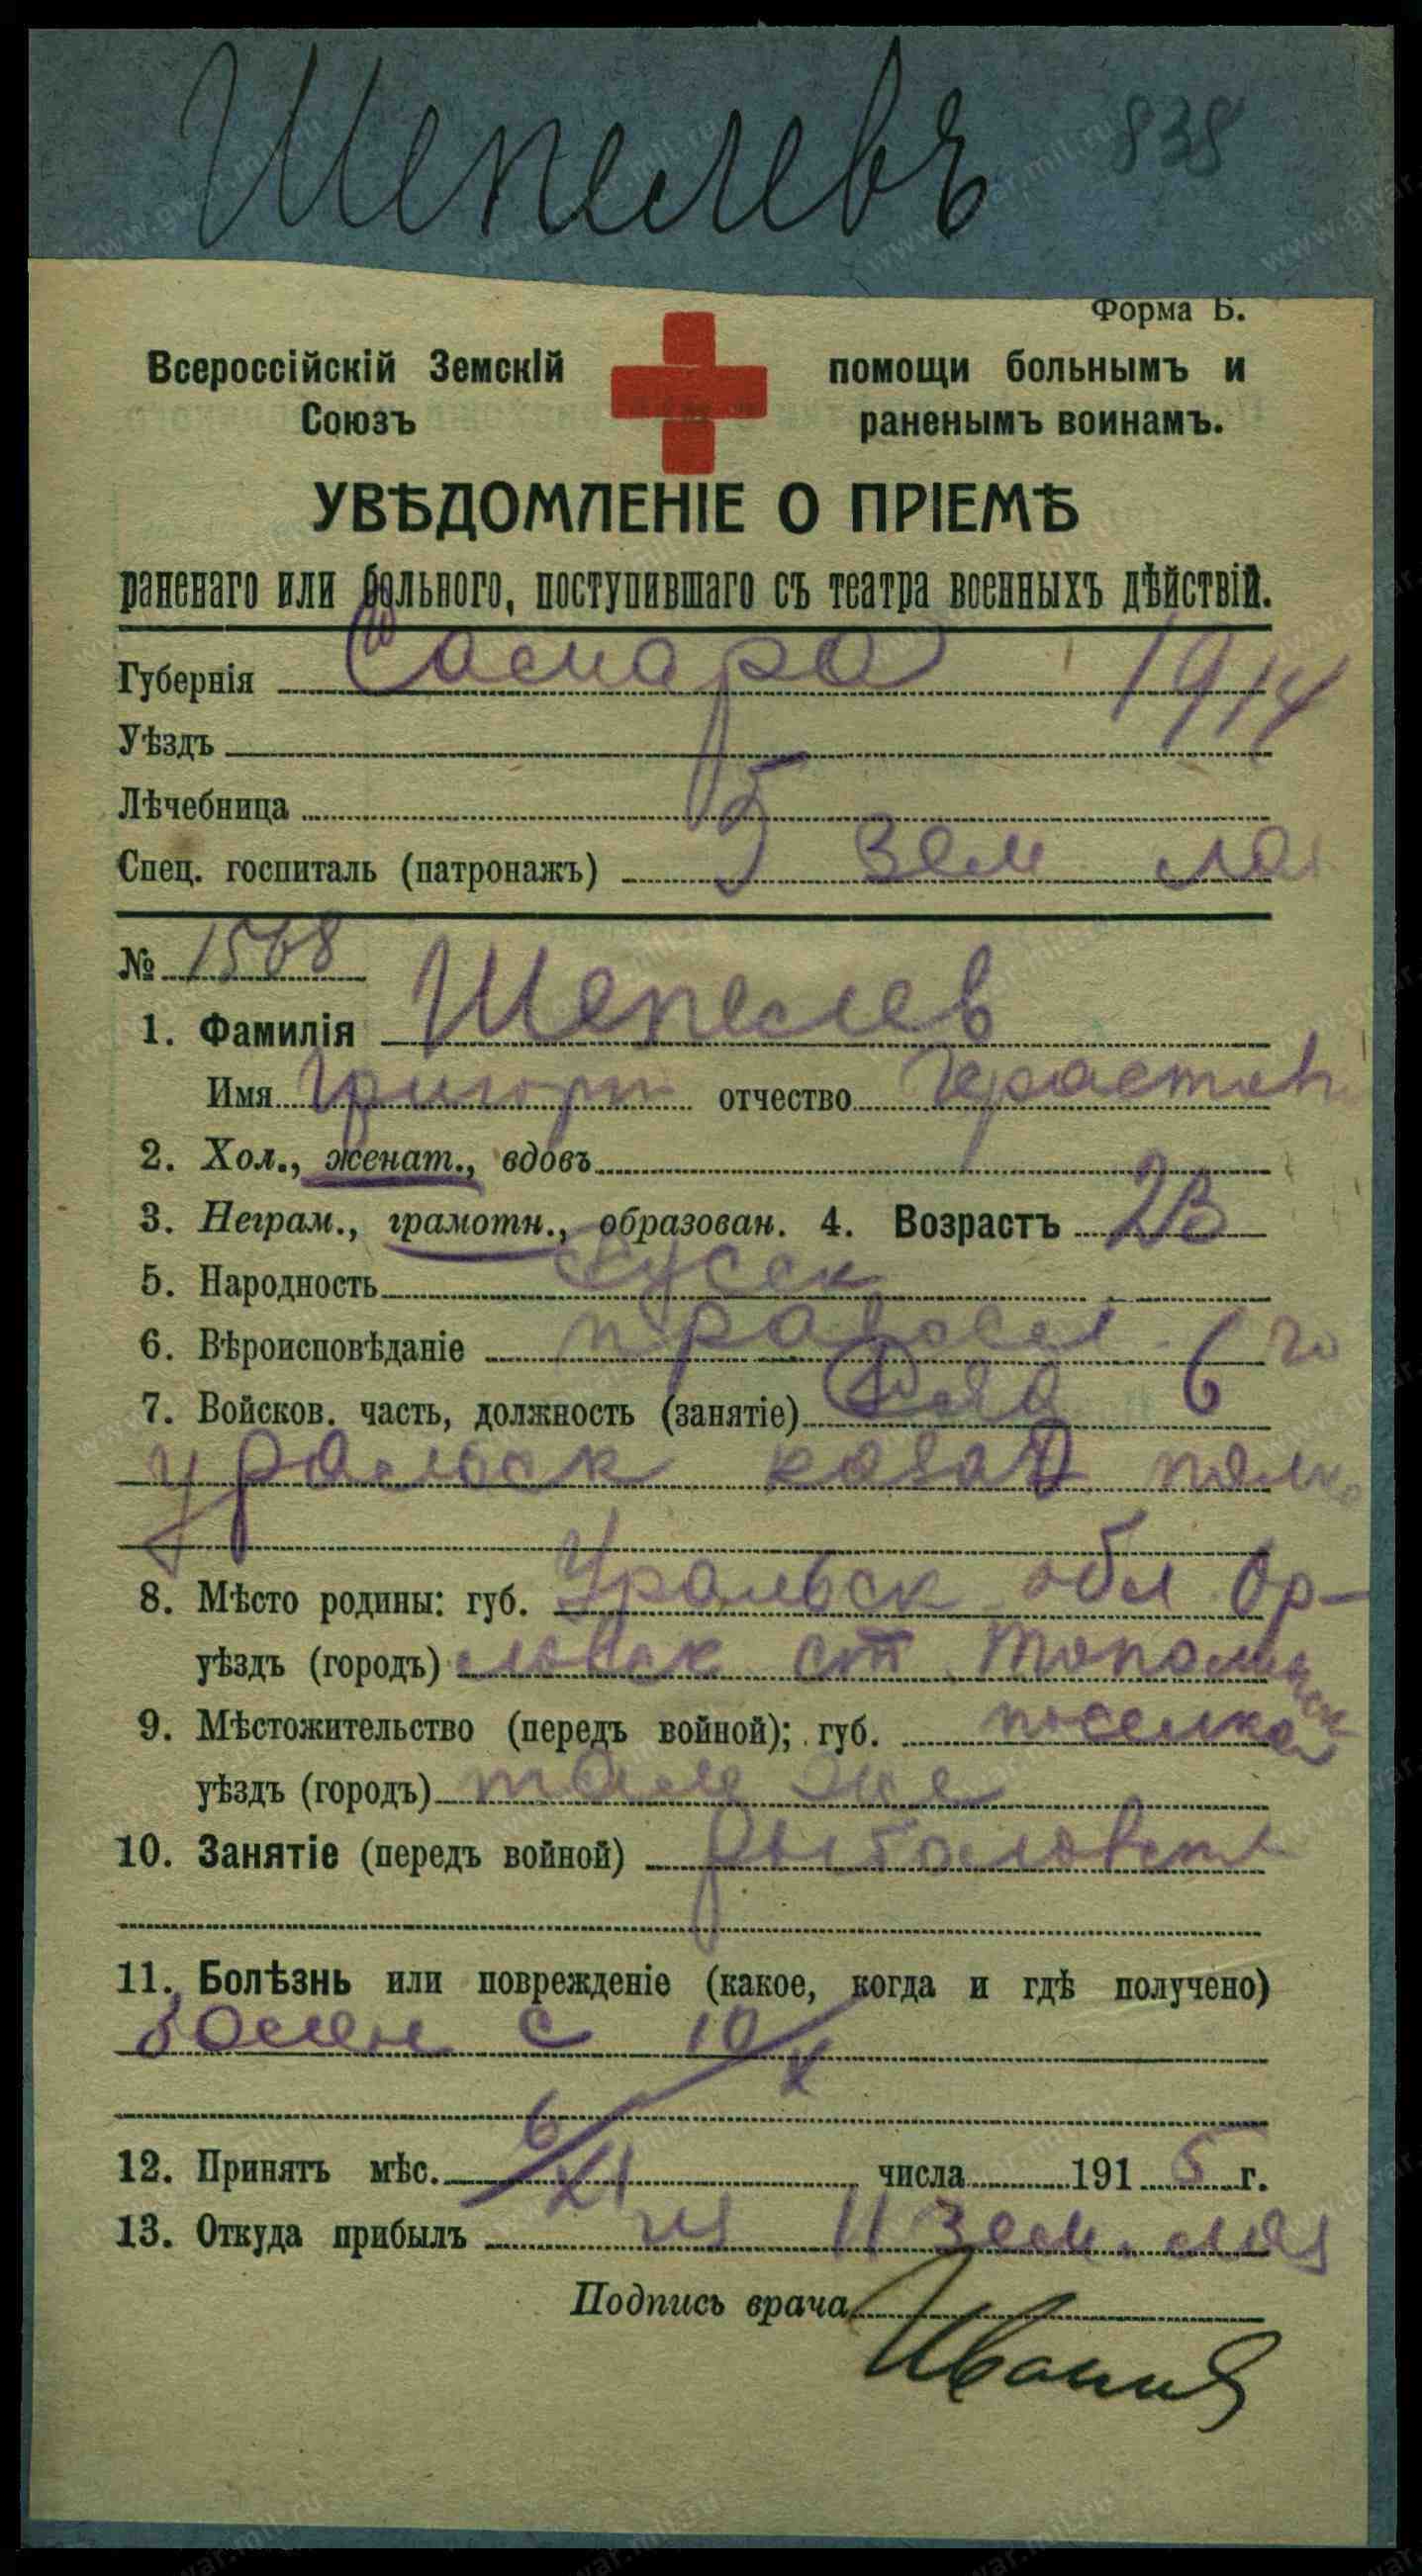 Шепелевъ 838
Форма Б.
Всероссійскій Земскій помощи больнымъ и
Союзъ раненымъ воинамъ.
УВѢДОМЛЕНІЕ О ПРІЕМѢ
раненаго или больного, поступившаго съ театра военныхъ дѣйствій.
Губернія Самара 1914
Уѣздъ
Лѣчебница
Спец. госпиталь (патронажъ) 5 зем лаз
№ 1568
1. Фамилія Шепелев
Имя Григори отчество
2. Хол., женат., вдовъ
3. Неграм., грамотн., образован. 4. Возрастъ
5. Народность Русск
6. Вѣроисповѣданіе православ 6 го
7. Войсков. часть, должность (занятіе)
Уральск казач полка
8. Мѣсто родины: губ. Уральск обл Ор-
уѣздъ (городъ) ловск ст Тополинск
9. Мѣстожительство (передъ войной); губ. поселка
уѣздъ (городъ) там же
10. Занятіе (передъ войной) рыболовств
11. Болѣзнь или поврежденіе (какое, когда и гдѣ получено)
болен с 10/X
12. Принятъ мѣс. 6/XI числа 1915 г.
13. Откуда прибылъ из 11 зем. лаз
Подпись врача